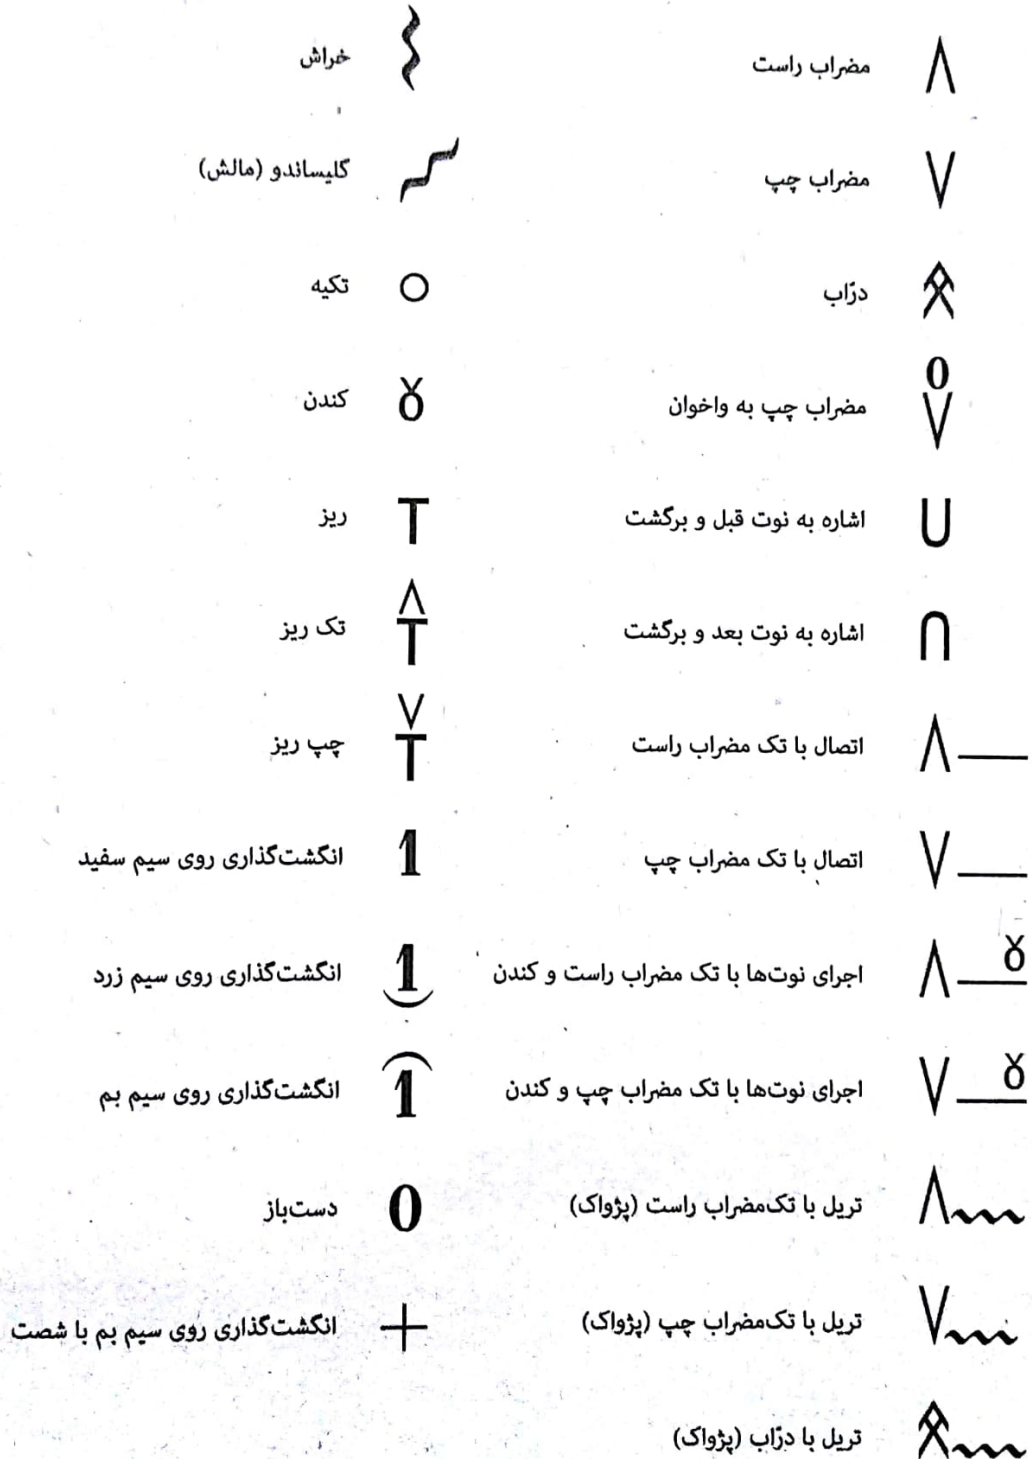 مضراب راست
مضراب چپ
درّاب
مضراب چپ به واخوان
اشاره به نوت قبل و برگشت
اشاره به نوت بعد و برگشت
اتصال با تک مضراب راست
اتصال با تک مضراب چپ
اجرای نوت‌ها با تک مضراب راست و کندن
اجرای نوت‌ها با تک مضراب چپ و کندن
تریل با تک‌مضراب راست (پژواک)
تریل با تک‌مضراب چپ (پژواک)
تریل با درّاب (پژواک)
خراش
گلیساندو (مالش)
تکیه
کندن
ریز
تک ریز
چپ ریز
انگشت‌گذاری روی سیم سفید
انگشت‌گذاری روی سیم زرد
انگشت‌گذاری روی سیم بم
دست‌باز
انگشت‌گذاری روی سیم بم با شصت